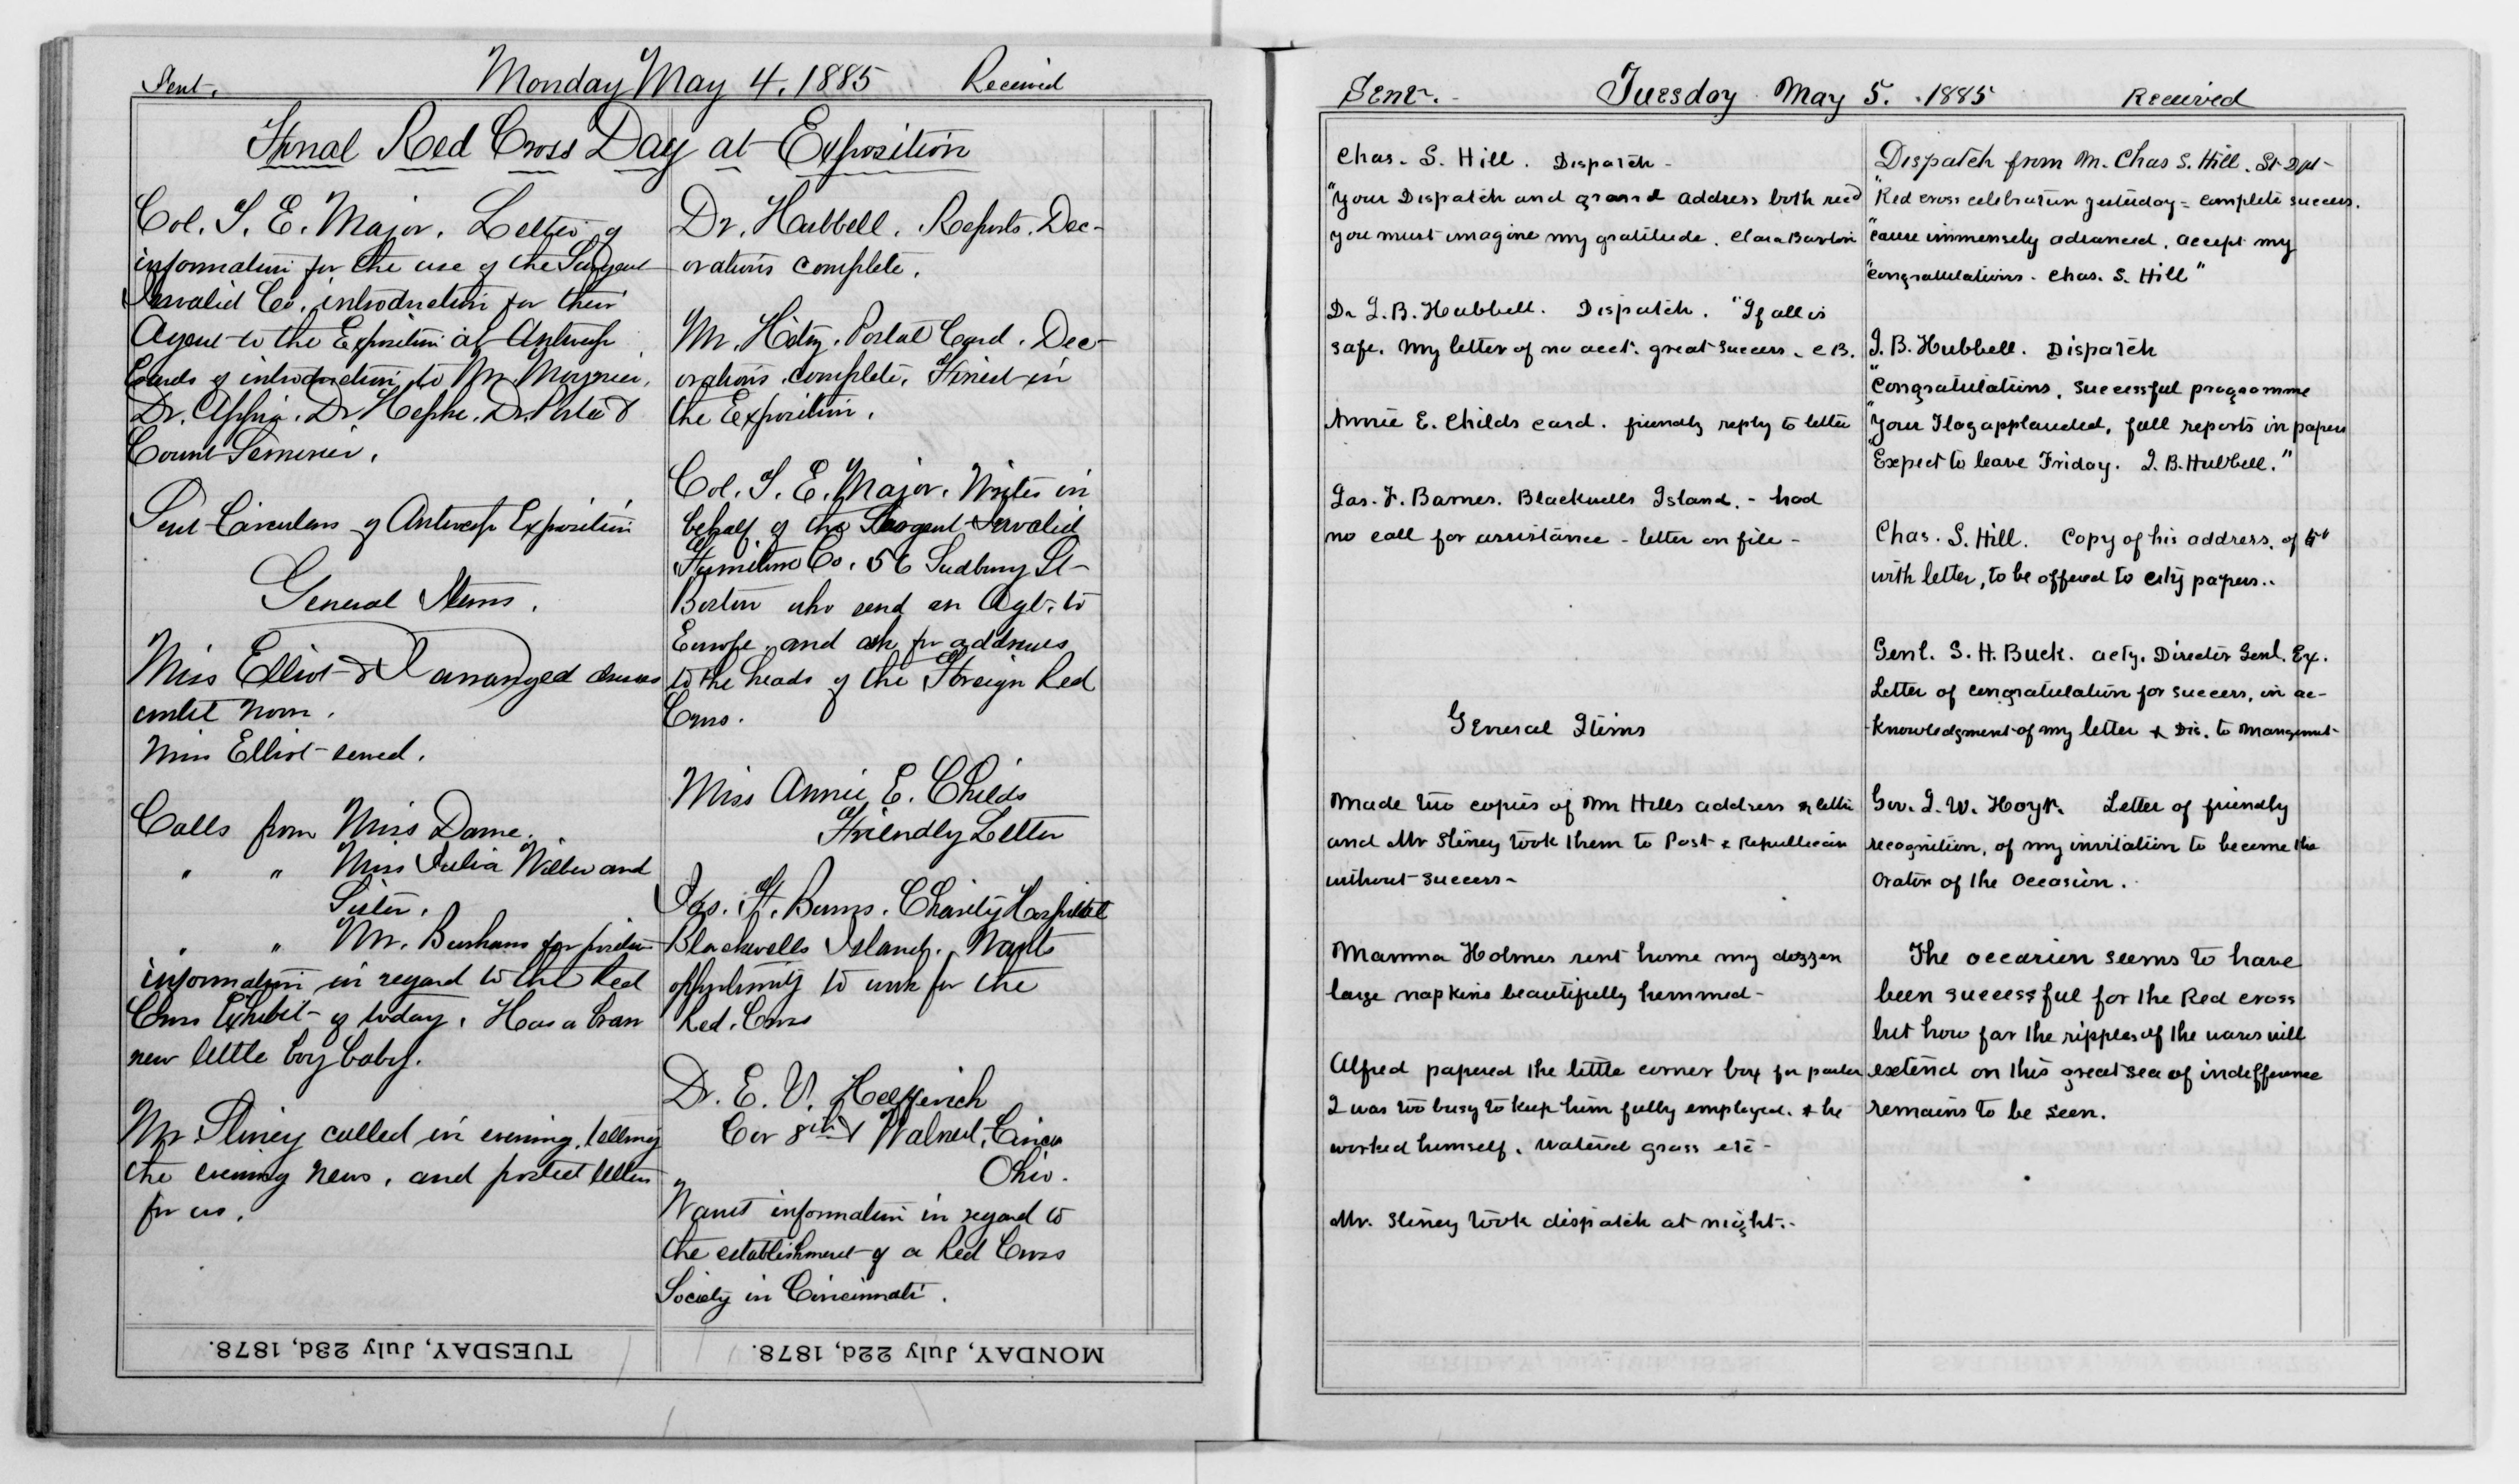 Sent. Monday May 4. 1885 Received
Final Red Cross Day at Exposition
Col. S. E. Major. Letter of
information for the use of the Sargent
Invalid Co. introduction for their
Agent to the Exposition at Antwerp.
Cards of introduction to Mr. Moynier,
Dr. Appia. Dr. Hepke. Dr. &
Count
Sent Circulars of Antwerp Exposition
General Items.
Miss Elliot & I arranged
until noon.
Miss Elliot sewed.
Calls from Miss Dame.
" " Miss Julia Wilber and
Sister.
" " Mr. Bunham for further
information in regard to the Red
Cross Exhibit of today. Has a bran
new little boy baby.
Mr Stiney called in evening, telling
the evening news, and posted letters
for us.
Dr. Hubbell. Reports. Dec-
orations complete.
Mr. Postal Card. Dec-
orations complete. Finest in
the Exposition.
Col. S. E. Major. Writes in
behalf of the Sargent Invalid
Furniture Co. 56 Sudbury St
Boston who send an Agt. to
Europe. and ask for addresses
to the heads of the Foreign Red
Cross.
Miss Annie E. Childs
Friendly Letter
Jas. F. Barnes. Charity Hospital
Blackwells Island. Wants
opportunity to work for the
Red. Cross
Dr. E. V. Helfferich
Cor 8th & Walnut, Cincin
Ohio.
Wants information in regard to
the establishment of a Red Cross
Society in Cincinnati.
TUESDAY, July 23d, 1878.
MONDAY, July 22d, 1878.
Sent. Tuesday May 5. 1885 Received
Chas. S. Hill. Dispatch -
"Your Dispatch and grand address both recd
you must imagine my gratitude. Clara Barton
Dr J. B. Hubbell. Dispatch. "If all is
safe. My letter of no acct. great success. C B.
Annie E. Childs card. friendly reply to letter
Jas. F. Barnes. Blackwells Island. - had
no call for assistance - letter on file -
General Items
Made two copies of Mr Hills address & letter
and Mr Stiney took them to Post & Republican
without success -
Mamma Holmes sent home my dozzen
large napkins beautifully hemmed -
Alfred papered the little corner box for parlor
I was too busy to keep him fully employed. & he
worked himself. Watered grass etc -
Mr. Stiney took dispatch at night. -
Dispatch from M. Chas S. Hill. St Dpt -
"Red cross celebration yesterday = complete success.
"cause immensely advanced, accept my
"congratulations. Chas. S. Hill"
J. B. Hubbell. Dispatch
"Congratulations, successful programme
"Your Flag applauded, full reports in papers
"Expect to leave Friday. J. B. Hubbell."
Chas. S. Hill. Copy of his address, of
with letter, to be offered to city papers..
Genl. S. H. Buck. actg. Director Genl. Ex.
Letter of congratulation for success, in ac-
-knowledgment of my letter & Dis. to Mangemnt -
Gov. J. W. Hoyt. Letter of friendly
recognition, of my invitation to become the
Orator of the Occasion.
The occasion seems to have
been successful for the Red cross
but how far the ripples of the waves will
extend on this great sea of indifference
remains to be seen.